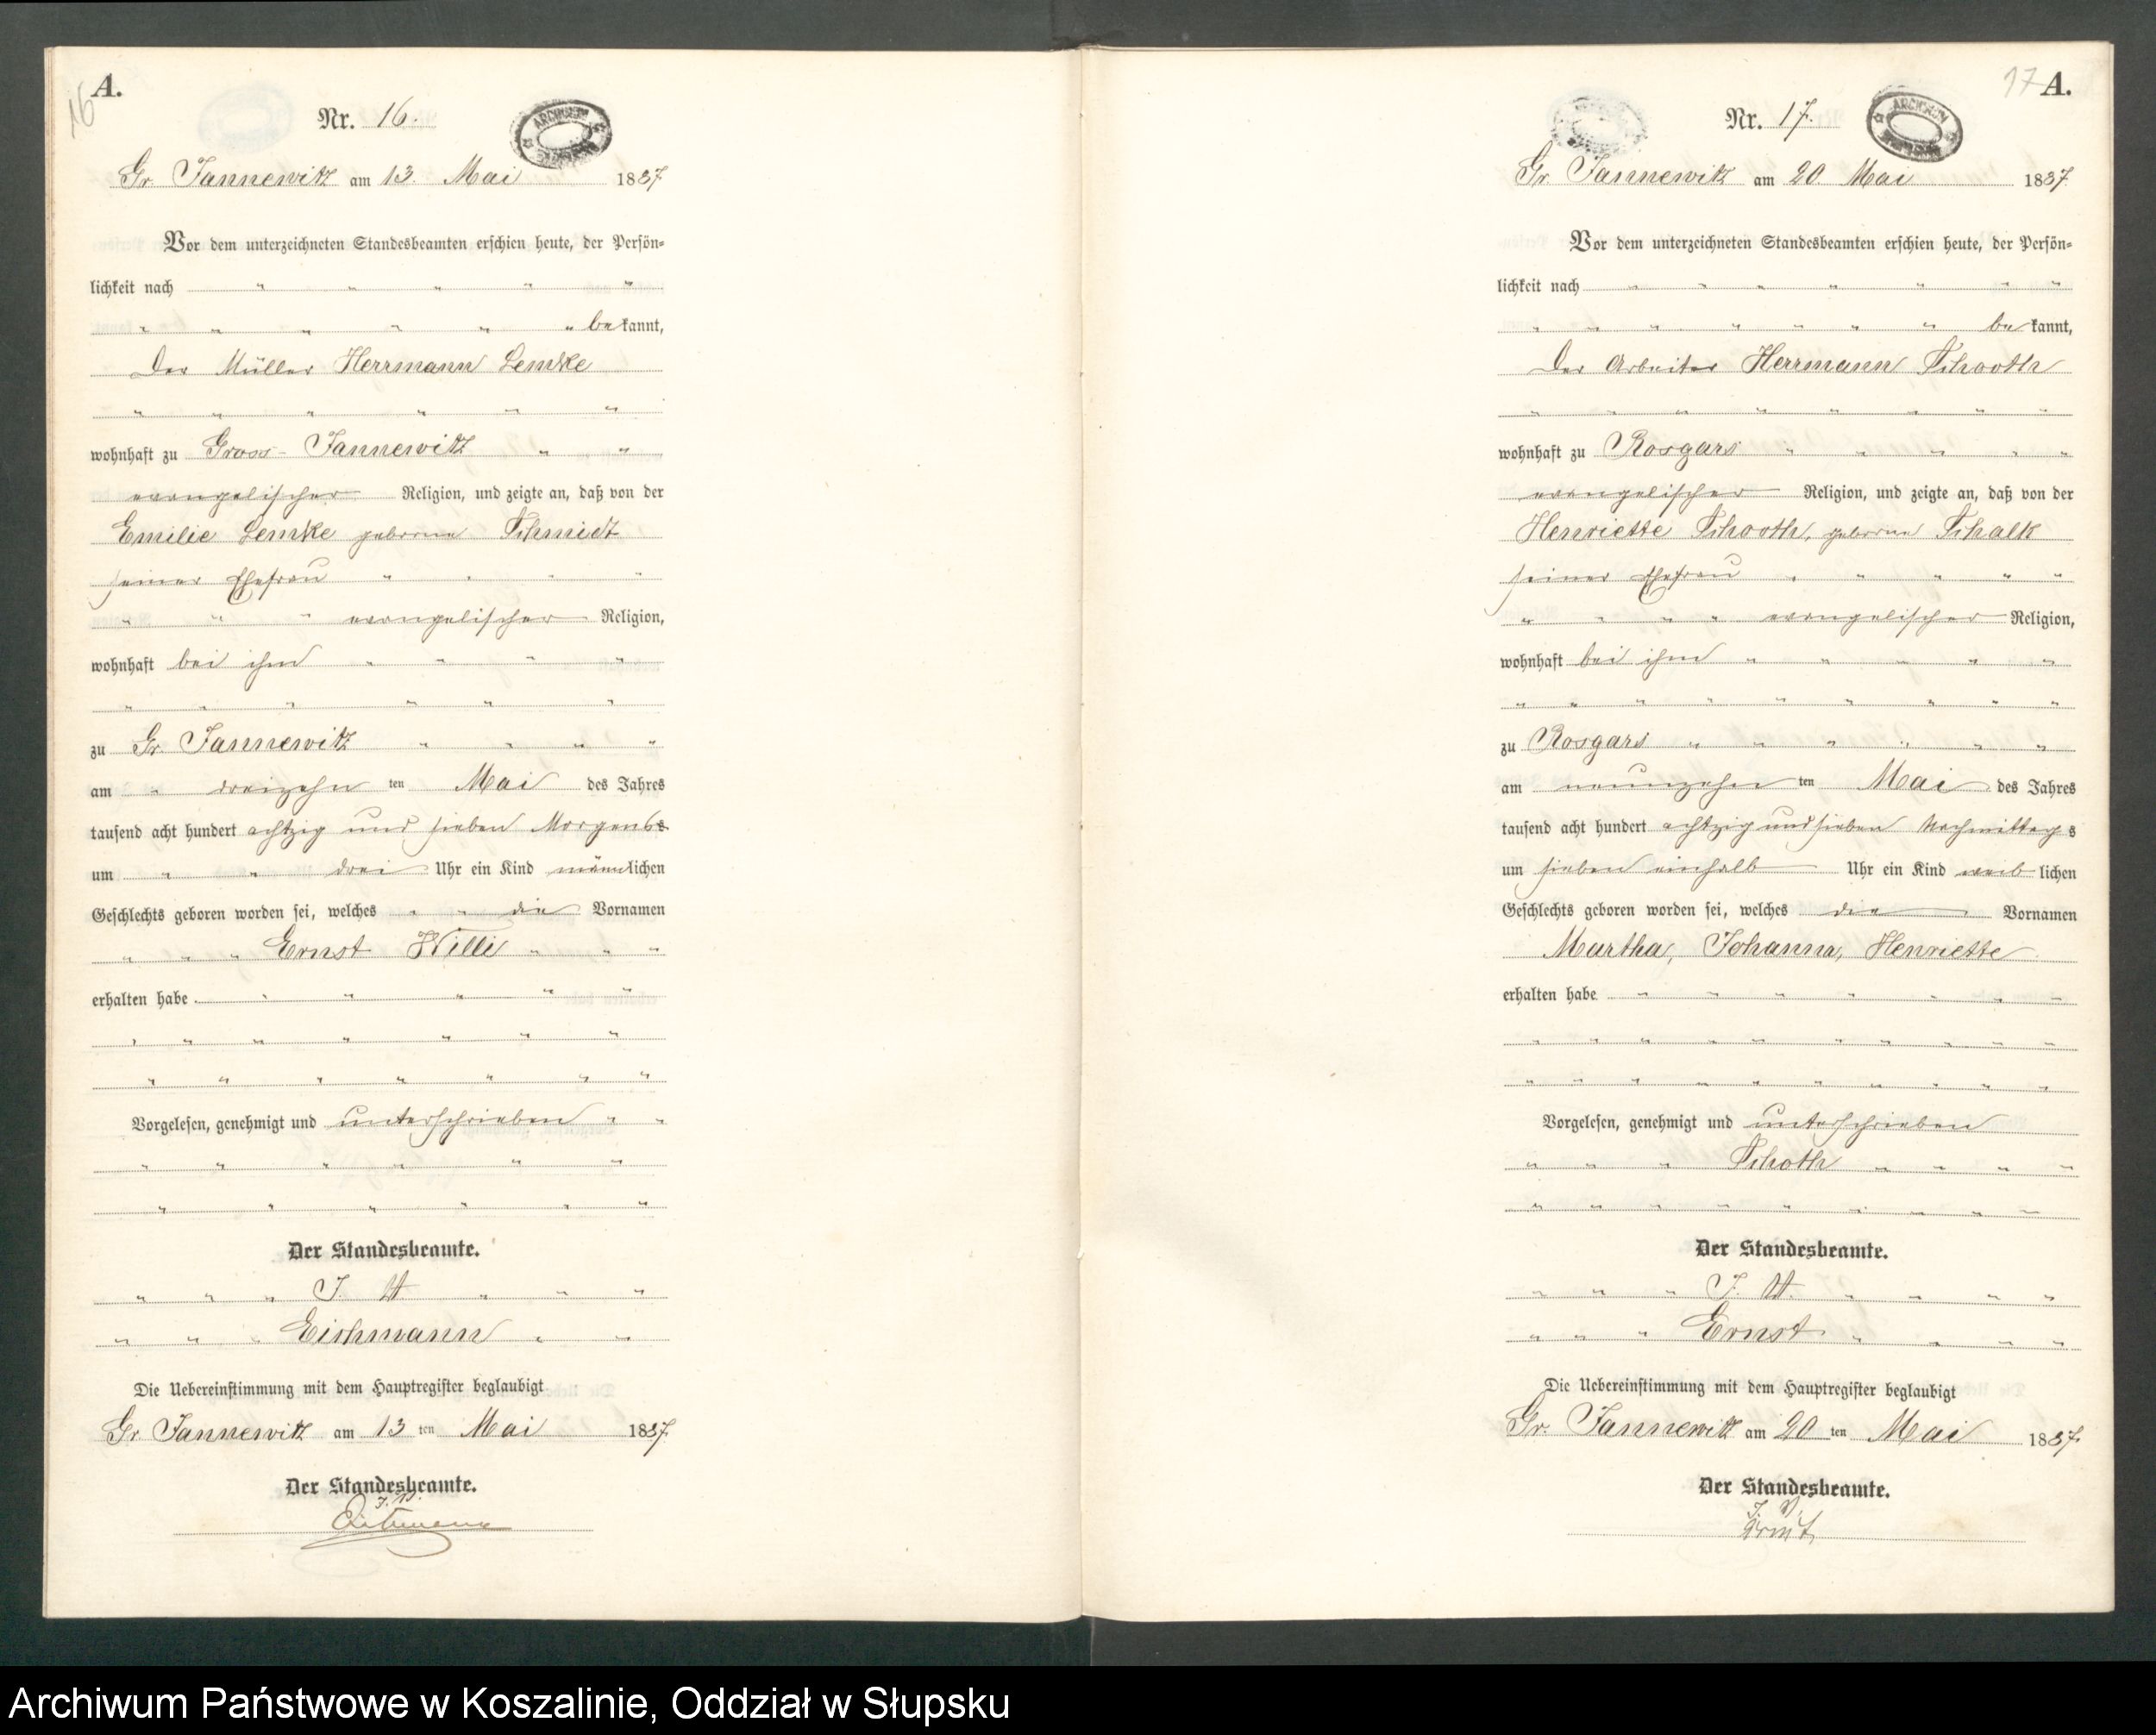 16
A.
Nr. 16.
ARCHIWUM
Gr Jannewitz am 13. Mai 1887
Vor dem unterzeichneten Standesbeamten erschien heute, der Persön-
lichkeit nach " " " " "
" " " " " " bekannt,
der Müller Herrmann Lemke
" " " " " "
wohnhaft zu Gross-Jannewitz " "
evangelischer Religion, und zeigte an, daß von der
Emilie Lemke geborene Schmidt
seiner Ehefrau " " " "
" " " evangelischer Religion,
wohnhaft bei ihm " " " "
" " " " " "
zu Gr Jannewitz " " " "
am " dreizehn ten Mai des Jahres
tausend acht hundert achtzig und sieben Morgens
um " " drei Uhr ein Kind männlichen
Geschlechts geboren worden sei, welches " " die Vornamen
" " " Ernst Willi " " "
erhalten habe. " " " " "
" " " " " " "
" " " " " " "
Vorgelesen, genehmigt und unterschrieben " "
" " " " " "
" " " " " "
Der Standesbeamte.
" " " J. V. " " "
" " " Eichmann " "
Die Uebereinstimmung mit dem Hauptregister beglaubigt
Gr. Jannewitz am 13 ten Mai 1887.
Der Standesbeamte.
J. V.
Eichmann
17
A.
Nr. 17.
ARCHIWUM
Gr. Jannewitz am 20. Mai 1887.
Vor dem unterzeichneten Standesbeamten erschien heute, der Persön-
lichkeit nach " " " " " " "
" " " " " " " bekannt,
der Arbeiter Herrmann Schooth
" " " " " " " "
wohnhaft zu Rosgars " " " " "
evangelischer Religion, und zeigte an, daß von der
Henriette Schooth, geborene Schalk
seiner Ehefrau " " " " "
" " " " evangelischer Religion,
wohnhaft bei ihm " " " " "
" " " " " " " " "
zu Rosgars " " " " " "
am neunzehn ten Mai des Jahres
tausend acht hundert achtzig und sieben Nachmittags
um sieben einhalb Uhr ein Kind weiblichen
Geschlechts geboren worden sei, welches die Vornamen
Martha, Johanna, Henriette
erhalten habe " " " " " " "
" " " " " " " " " "
" " " " " " " " " "
Vorgelesen, genehmigt und unterschrieben
" " " Schoth " " " "
" " " " " " " " "
Der Standesbeamte.
" " " J. V. " " " "
" " " Ernst " " " "
Die Uebereinstimmung mit dem Hauptregister beglaubigt
Gr. Jannewitz am 20 ten Mai 1887.
Der Standesbeamte.
J. V.
Ernst
Archiwum Państwowe w Koszalinie, Oddział w Słupsku